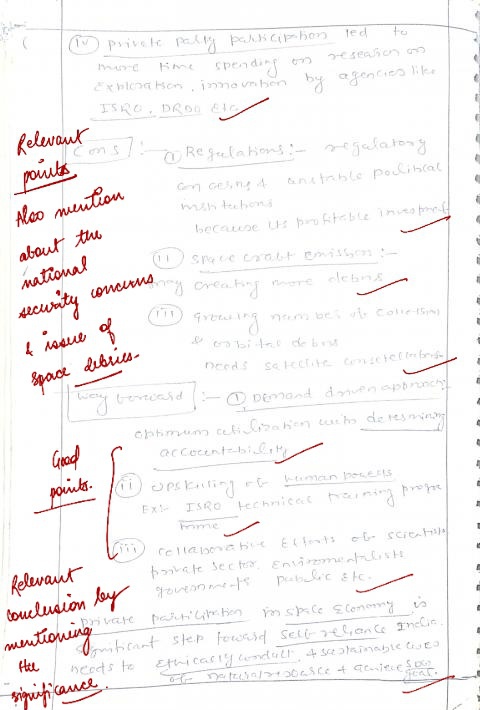 (iv) private party participation led to
more time spending on research on
Exploration, innovation by agencies like
ISRO, DRDO Etc
Relevant
points
Also mention
about the
national
security concerns
& issue of
space debries.
Cons :- (i) Regulations :- regulatory
concerns & unstable political
institutions
because its profitable
(ii) Space craft Emission :-
may creating more debris
(iii) growing number of collision
& orbital debris
needs satellite constellations
Way forward :- (i) Demand driven approach
optimum utilization with determining
accountability
Good
points.
(ii) upskilling of human
Ex:- ISRO technical training progra
mme
(iii) collaborative Efforts of scientists
private sector, Enviromentalists
governments public etc.
Relevant
conclusion by
mentioning
the
significance.
private participation in space Economy is
significant step toward self reliance India.
needs to ethically conduct & sustainable
of natural resource & achieve SDG
goal.